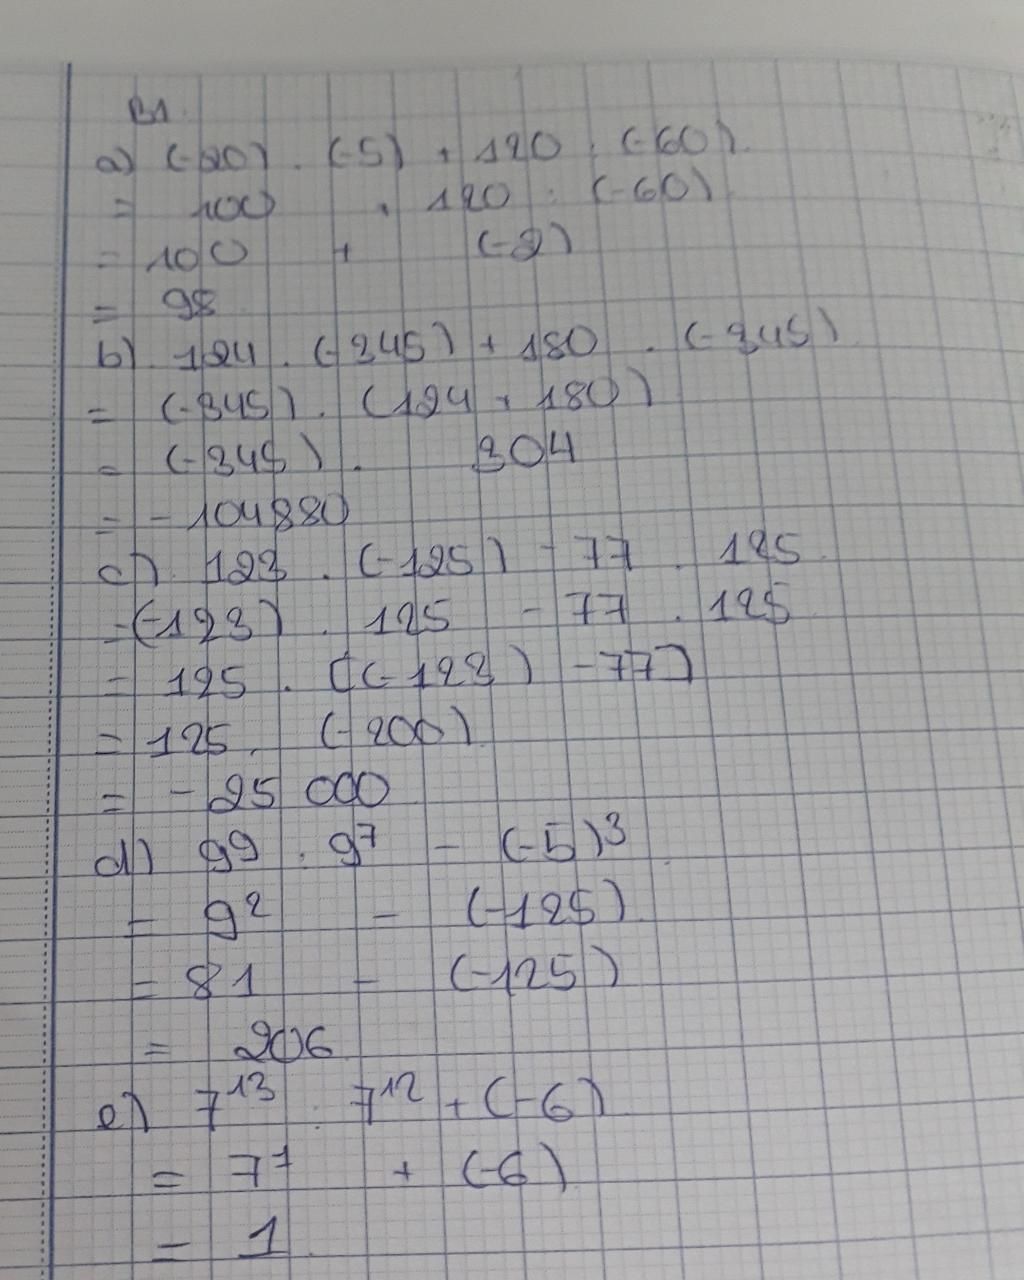 B1.
a) (-20) . (-5) + 120 : (-60)
= 100 + 120 : (-60)
= 100 + (-2)
= 98
b) 124 . (-345) + 180 . (-345)
= (-345) . (124 + 180)
= (-345) . 304
= - 104880
c) 123 . (-125) - 77 . 125
= (-123) . 125 - 77 . 125
= 125 . ((-123) - 77)
= 125 . (-200)
= - 25 000
d) 9⁹ : 9⁷ - (-5)³
= 9² - (-125)
= 81 - (-125)
= 206
e) 7¹³ : 7¹² + (-6)
= 7¹ + (-6)
= 1